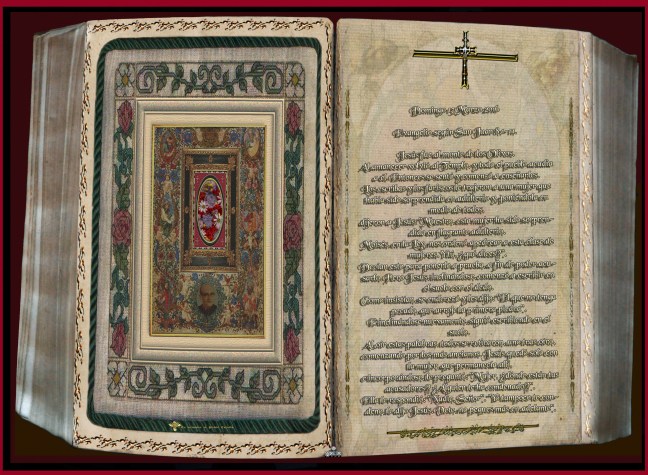 Domingo 13 Marzo 2016
Evangelio según San Juan 8,1-11.
Jesús fue al monte de los Olivos.
Al amanecer volvió al Templo, y todo el pueblo acudía
a él. Entonces se sentó y comenzó a enseñarles.
Los escribas y los fariseos le trajeron a una mujer que
había sido sorprendida en adulterio y, poniéndola en
medio de todos,
dijeron a Jesús: "Maestro, esta mujer ha sido sorpren-
dida en flagrante adulterio.
Moisés, en la Ley, nos ordenó apedrear a esta clase de
mujeres. Y tú, ¿qué dices?".
Decían esto para ponerlo a prueba, a fin de poder acu-
sarlo. Pero Jesús, inclinándose, comenzó a escribir en
el suelo con el dedo.
Como insistían, se enderezó y les dijo: "El que no tenga
pecado, que arroje la primera piedra".
E inclinándose nuevamente, siguió escribiendo en el
suelo.
Al oír estas palabras, todos se retiraron, uno tras otro,
comenzando por los más ancianos. Jesús quedó solo con
la mujer, que permanecía allí,
e incorporándose, le preguntó: "Mujer, ¿dónde están tus
acusadores? ¿Alguien te ha condenado?".
Ella le respondió: "Nadie, Señor". "Yo tampoco te con-
deno, le dijo Jesús. Vete, no peques más en adelante".